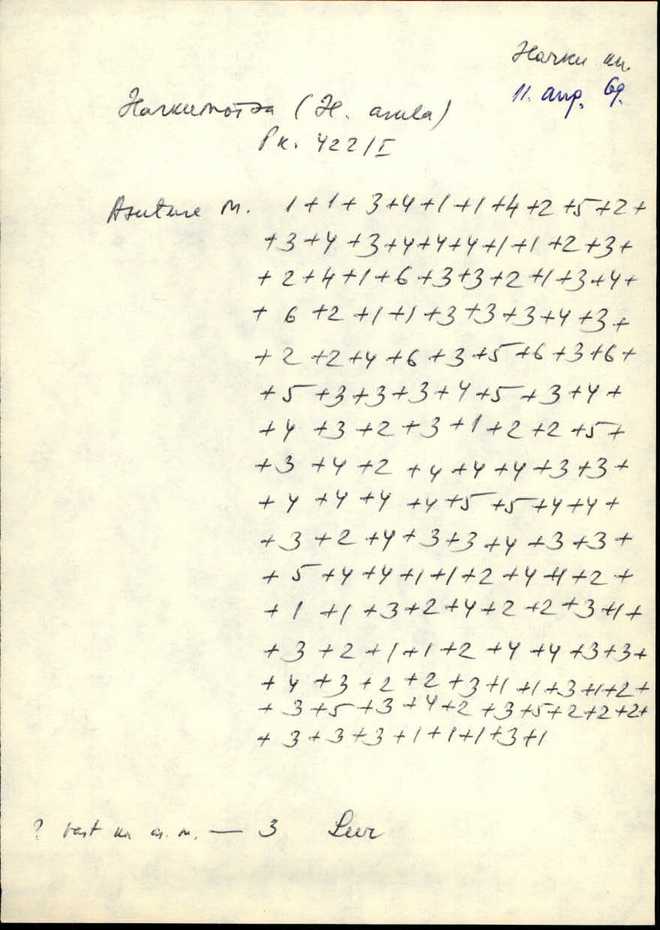 11. aug. 69.
(H. asula)
Pk. 422/I
Asulase M. 1+1+3+4+1+1+4+2+5+2+
+3+4+3+4+4+4+1+1+2+3+
+2+4+1+6+3+3+2+1+3+4+
+6+2+1+1+3+3+3+4+3+
+2+2+4+6+3+5+6+3+6+
+5+3+3+3+4+5+3+4+
+4+3+2+3+1+2+2+5+
+3+4+2+4+4+4+3+3+
+4+4+4+4+5+5+4+4+
+3+2+4+3+3+4+3+3+
+5+4+4+1+1+2+4+4+2+
+1+1+3+2+4+2+2+3+1+
+3+2+1+1+2+4+4+3+3+
+4+3+2+2+3+1+1+3+1+2+
+3+5+3+4+2+3+5+2+2+2+
+3+3+3+1+1+1+3+1
? — 3